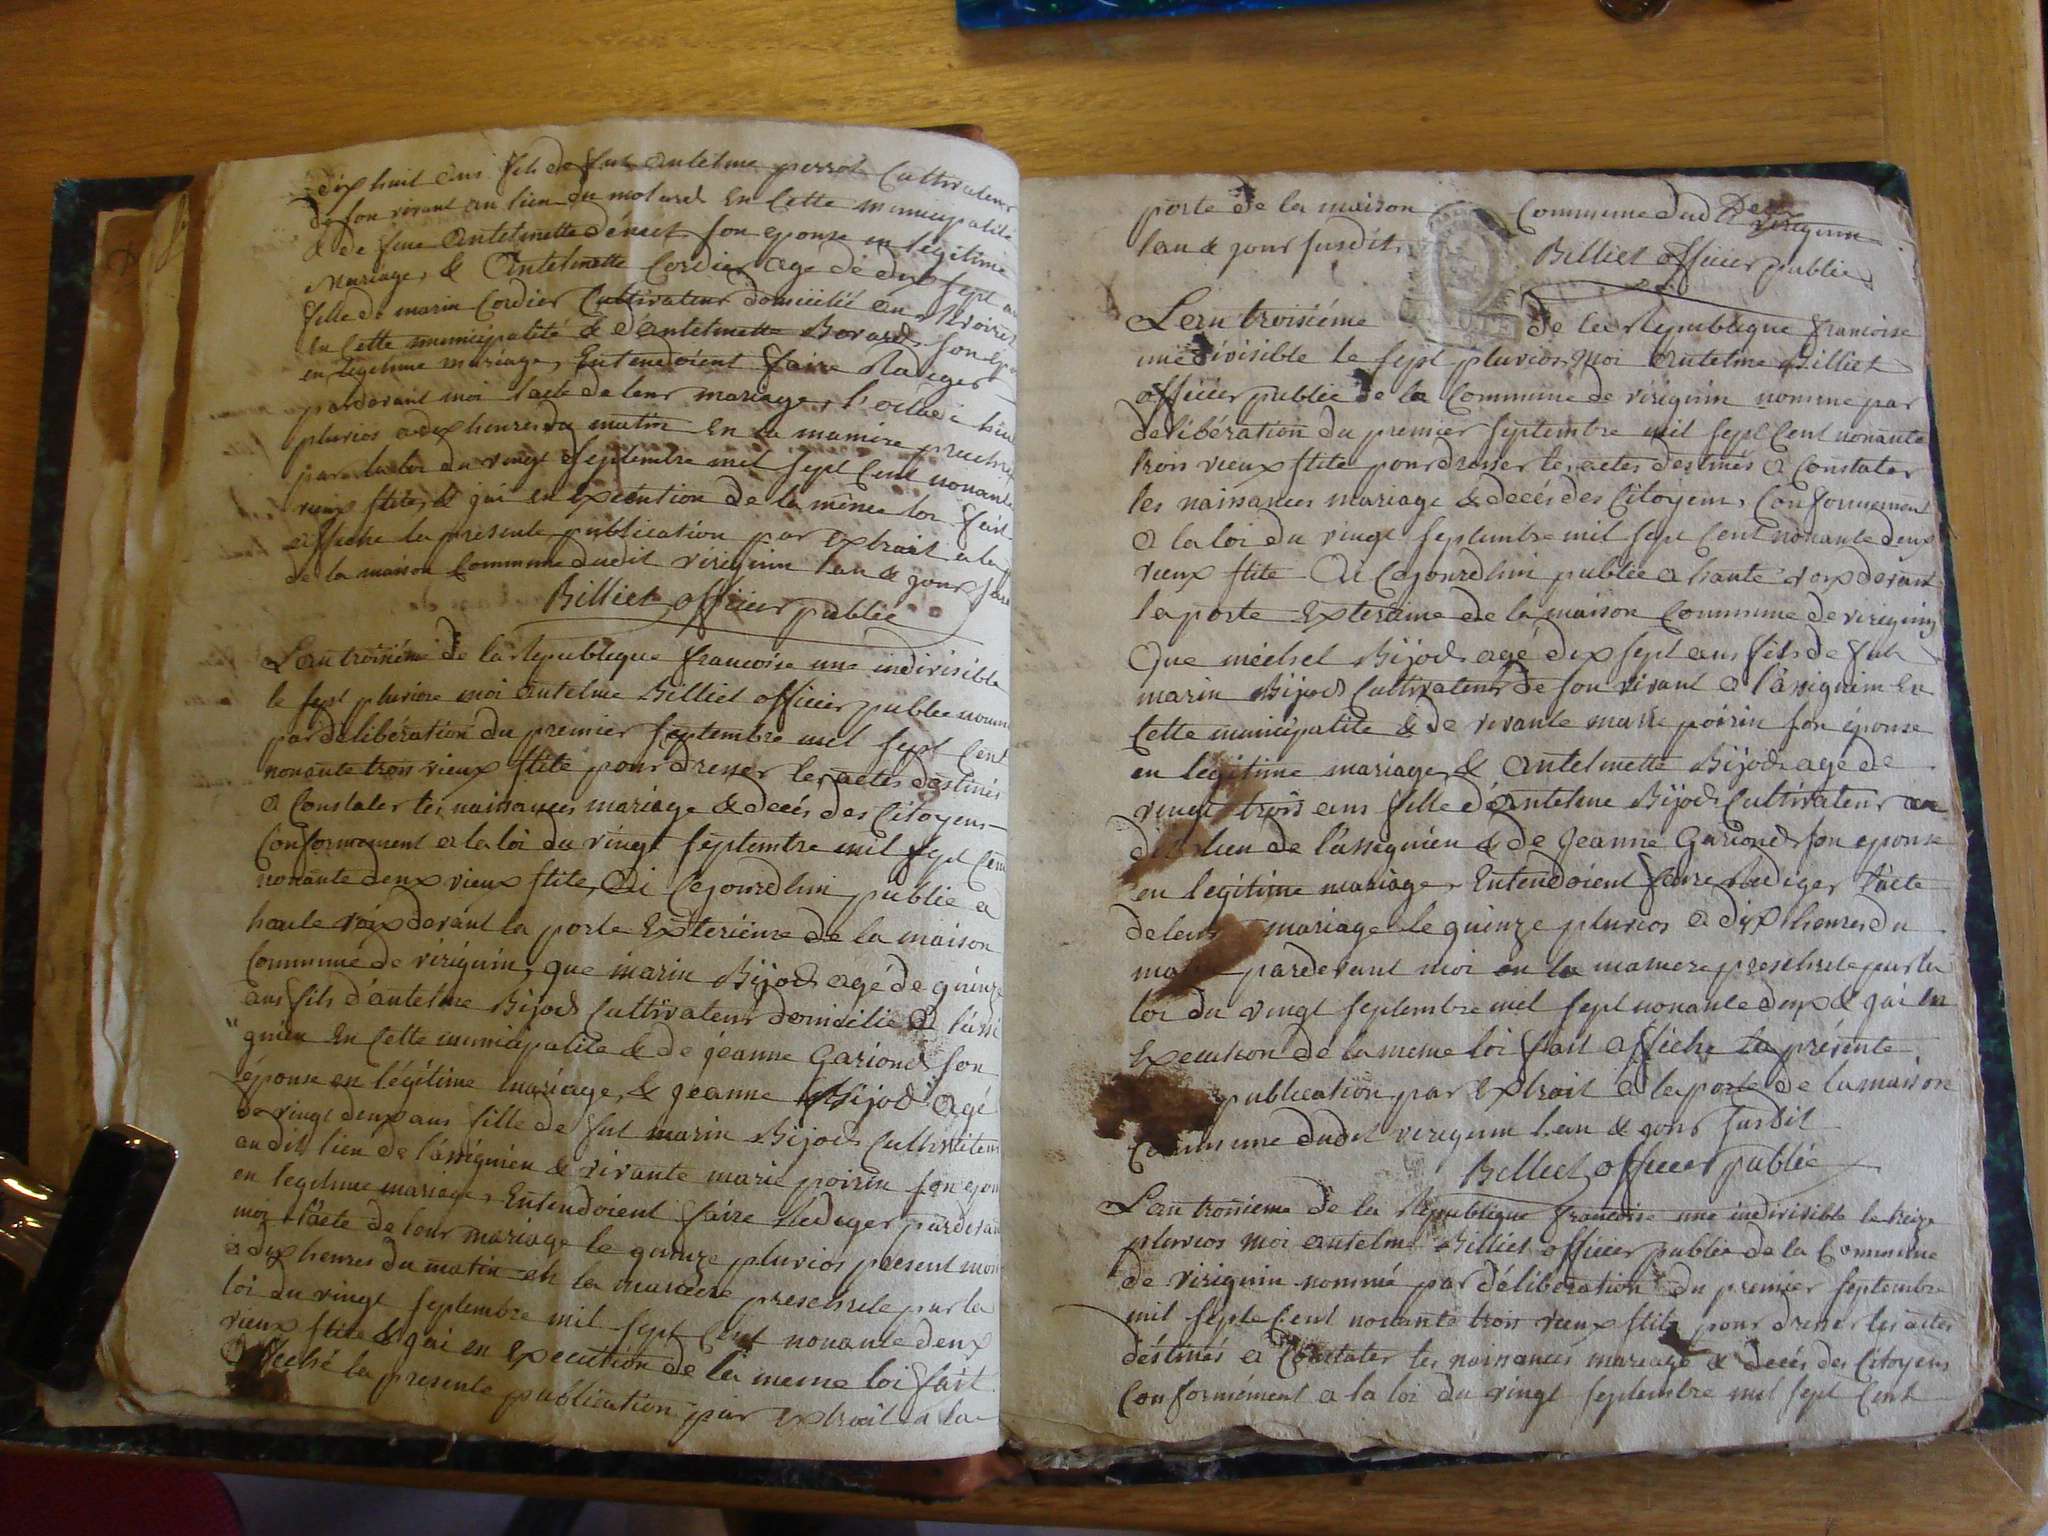 dix huit ans fils de fut antelme perrot Cultivateur
de son vivant au lieu du molard En Cette municipalité
& de feue Antelmette son eponse en légitime
mariage, & Antelmette Cordier agé de dix sept
fille de marin Cordier Cultivateur domicilié au
en Cette municipalité & d'antelmette Borard son
en legitime mariage, Entendoient faire Rediger
pardevant moi l'acte de leur mariage, l'octidi
pluvios a dix heures du matin En la maniere
par la loi du vingt septembre mil sept Cent nonante
vieux stite, & jai en execution de la même loi fait
affiché la presente publication par extrait a la
de la maison Commune dudit virignin lan & jour
Billiet officier publie
Lan troisiéme de la Republique francoise une indivisible
le sept pluviose moi antelme Billiet officier publie nomm
par délibération du premier septembre mil sept Cent
nonante trois vieux stite pour dresser les actes destinés
a Constater les naissances mariage & decés des Citoyens
Conformement a la loi du vingt septembre mil sept Cent
nonante deux vieux stite, Ai Cejourdhui publie a
haute voix devant la porte Exterieure de la maison
Commune de virignin, que marin Bijod agé de quinze
ans fils d'antelme Bijod Cultivateur domicilie a l'assi
gnieu En Cette municipalite & de jeanne Gariond son
éponse en légitime mariage, & jeanne Bijod agé
de vingt deux ans fille de fut marin Bijod Cultivateur
audit lieu de l'assignieu & vivante marie poirin son epon
en legitime mariage, Entendoient faire Rediger pardevan
moi l'acte de leur mariage le quinze pluvios present mois
a dix heures du matin en la maniere preschrete par la
loi du vingt septembre mil sept Cent nonante deux
vieux stite & jai en execution de la meme loi fait
affiché la presente publication par extrait a la
porte de la maison Commune dud virignin
lan & jour susdit,
Billiet officier publie
Lan troisiéme de la Republique francoise
une divisible le sept pluvios, moi Antelme Billiet
officier publie de la Commune de virignin nomme par
delibération du premier septembre mil sept Cent nonante
trois vieux stite pour dresser les actes destinés a Constater
les naissances mariage & decés des Citoyens, Conformement
a la loi du vingt septembre mil sept Cent nonante deux
vieux stite Ai Cejourdhui publie a haute voix devant
la porte Exteraine de la maison Commune de virignin
Que michel Bijod agé dix sept ans fils de fut
marin Bijod Cultivateur de son vivant a l'assignim En
Cette municipalite & de vivante marie poirin son éponse
en légitime mariage, & Antelmette Bijod agé de
vingt trois ans fille d'antelme Bijod Cultivateur au
dit lieu de l'assignieu & de jeanne Gariond son eponse
en legitime mariage, Entendoient faire Rediger l'acte
de leur mariage le quinze pluvios a dix heures du
matin pardevant moi en la maniere preschrete par la
loi du vingt septembre mil sept nonante deux & jai en
Execution de la meme loi fait affiche la présente
publication par extrait a la porte de la maison
Commune dudit virignin lan & jour susdit
Billiet officier publié
Lan troisieme de la Republique francoise une indivisible le treize
pluvios moi antelme Billiet officier publie de la Commune
de virignin nommé par délibération du premier septembre
mil sept Cent nonante trois vieux stite pour dresser les actes
déstinés a Constater les naissances mariage & decés des Citoyens
Conformément a la loi du vingt septembre mil sept Cent